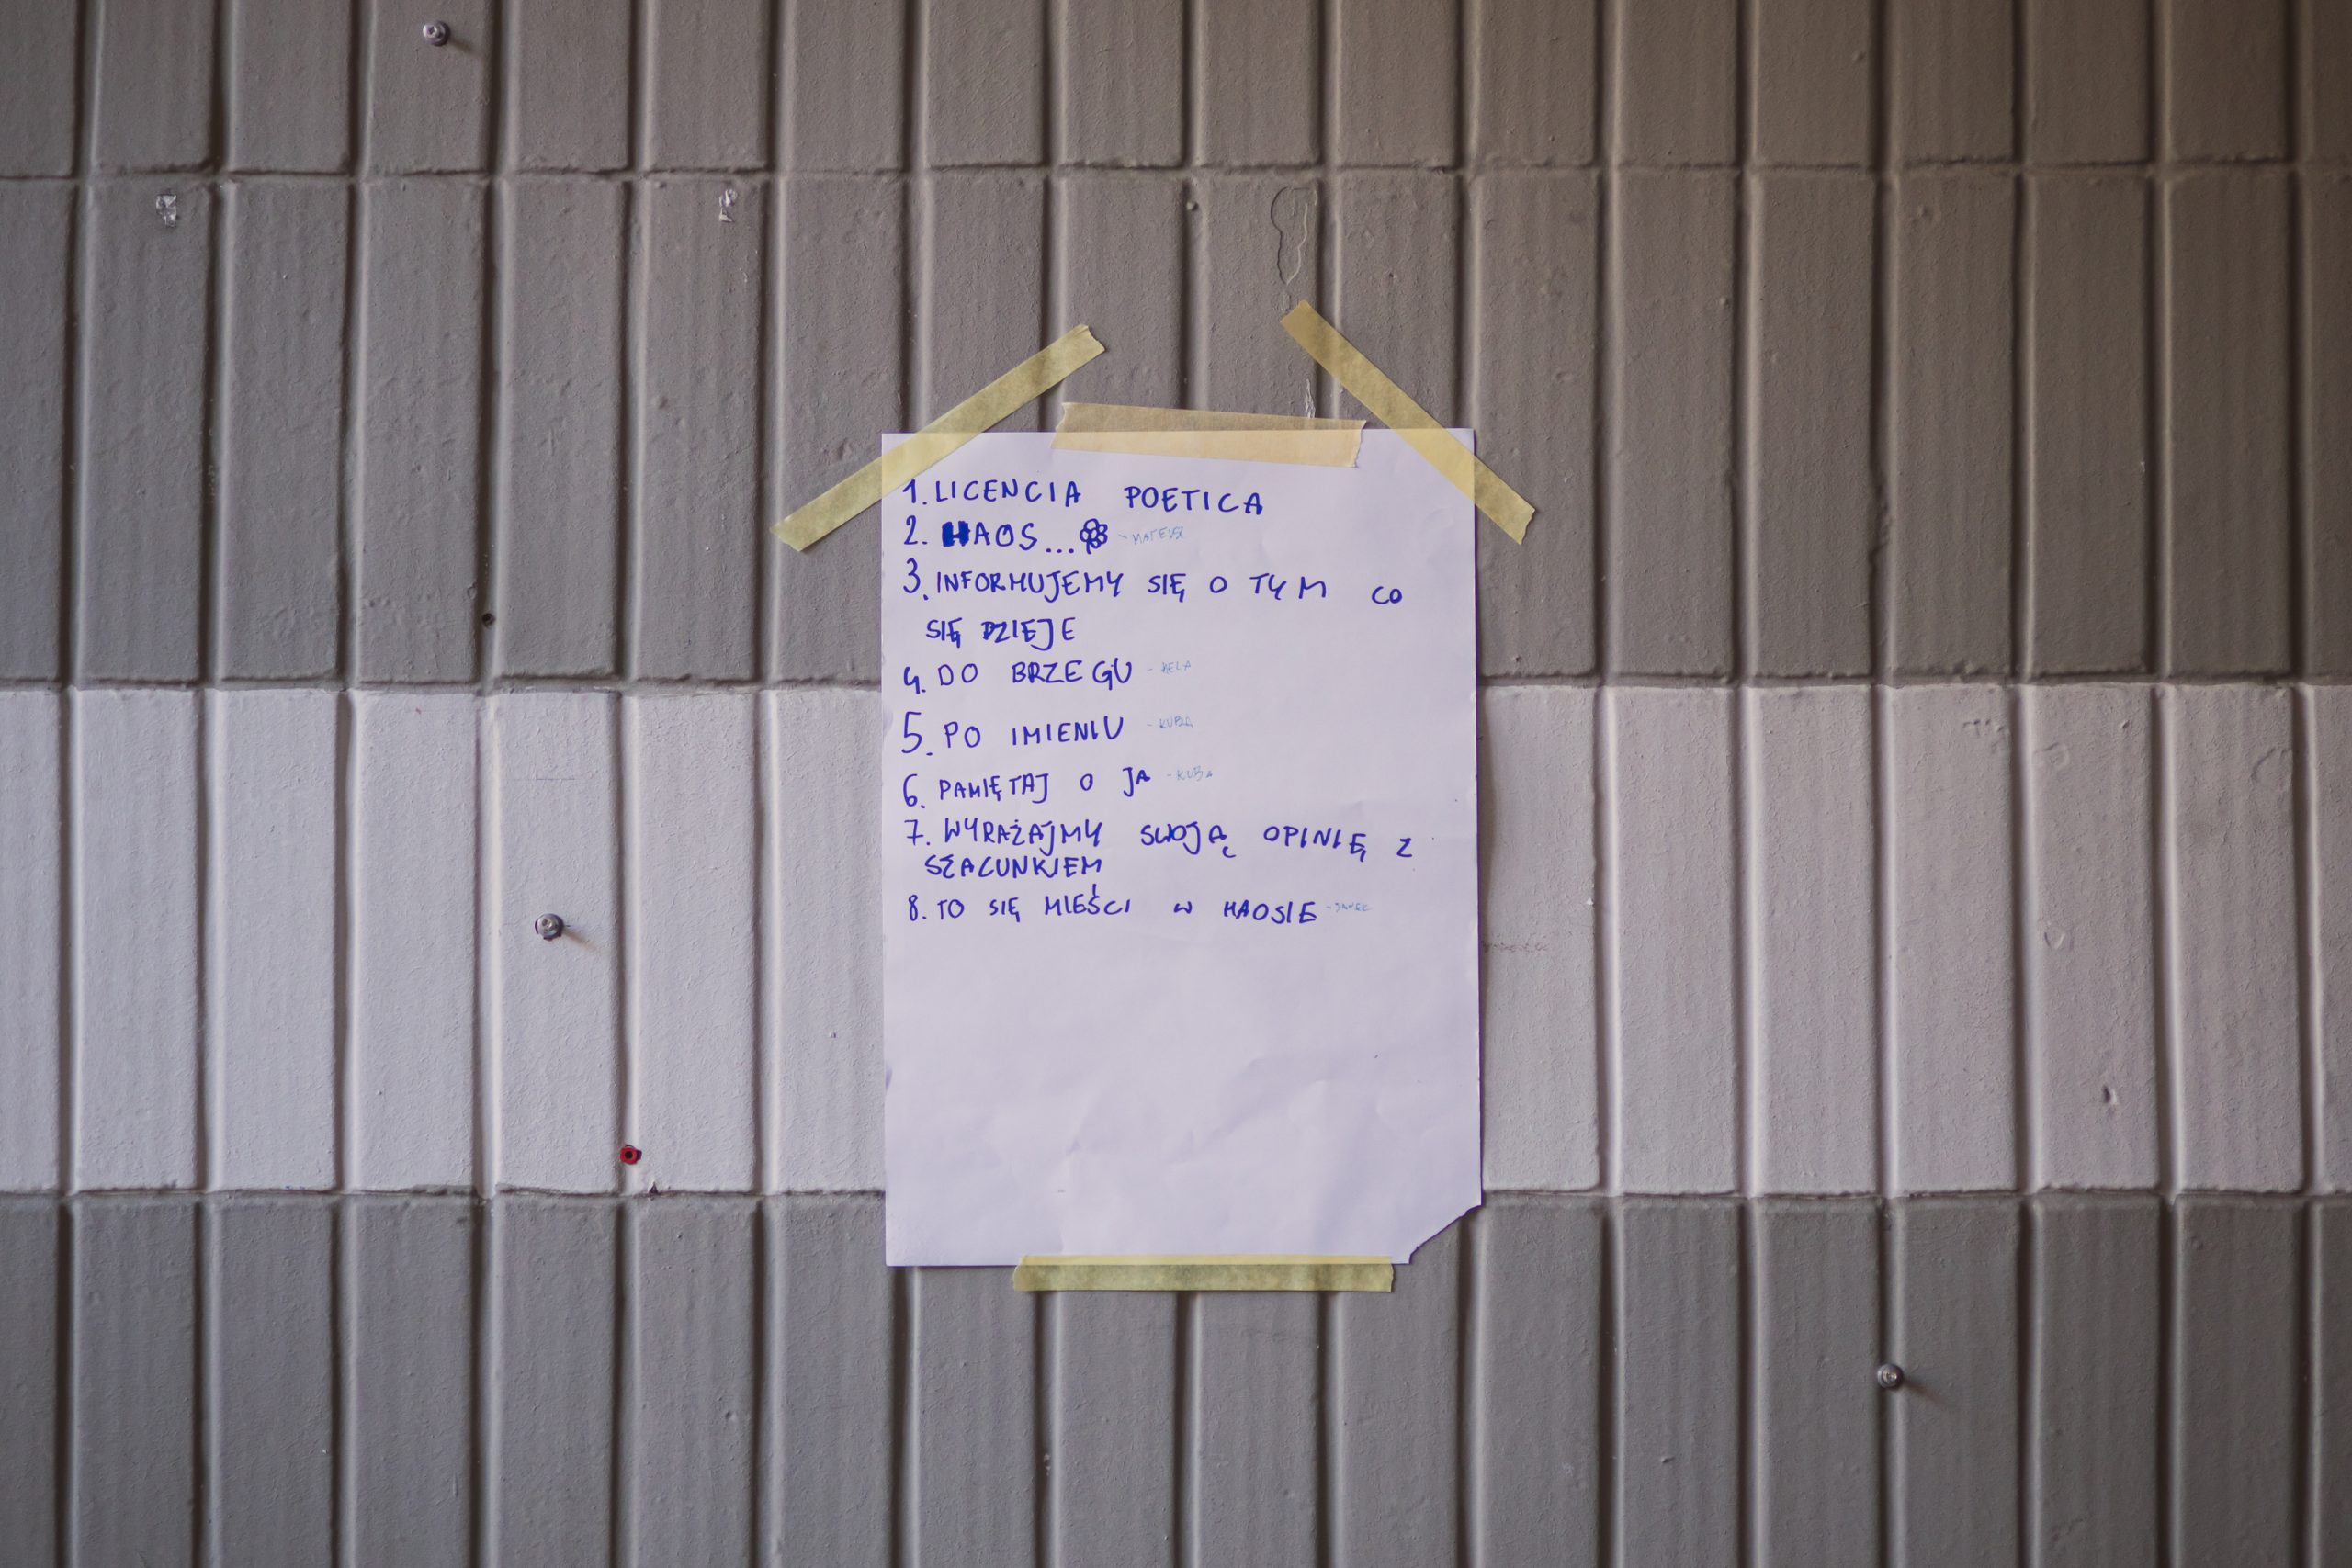 1. LICENCIA POETICA
2. HAOS... - MATEUSZ
3. INFORMUJEMY SIĘ O TYM CO
SIĘ DZIEJE
4. DO BRZEGU
5. PO IMIENIU - KUBA
6. PAMIĘTAJ O JA - KUBA
7. WYRAŻAJMY SWOJĄ OPINIĘ Z
SZACUNKIEM
8. TO SIĘ MIEŚCI W HAOSIE - JANEK